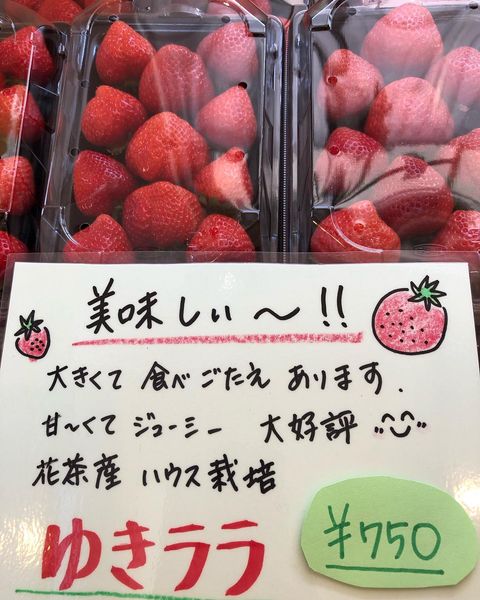 美味しい〜!!
大きくて 食べごたえ あります.
甘〜くて ジューシー 大好評
花茶産 ハウス栽培
ゆきララ
¥750